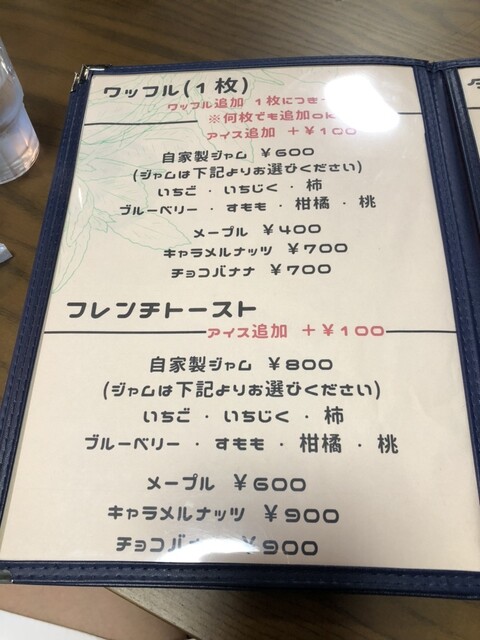 ワッフル(1枚)
ワッフル追加 1枚につき
※何枚でも追加ok
アイス追加 +¥100
自家製ジャム ¥600
(ジャムは下記よりお選びください)
いちご・いちじく・柿
ブルーベリー・すもも・柑橘・桃
メープル ¥400
キャラメルナッツ ¥700
チョコバナナ ¥700
フレンチトースト
アイス追加 +¥100
自家製ジャム ¥800
(ジャムは下記よりお選びください)
いちご・いちじく・柿
ブルーベリー・すもも・柑橘・桃
メープル ¥600
キャラメルナッツ ¥900
チョコバナナ ¥900